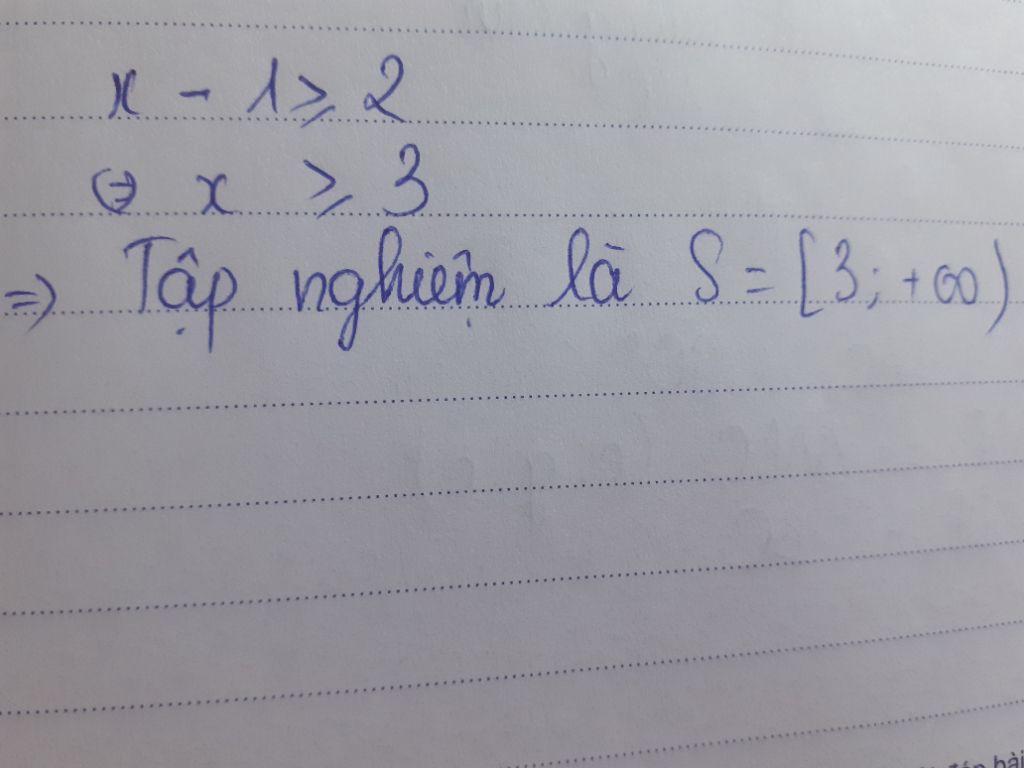 x - 1 ≥ 2
⇔ x ≥ 3
⇒ Tập nghiệm là S = [3; +∞)
bài